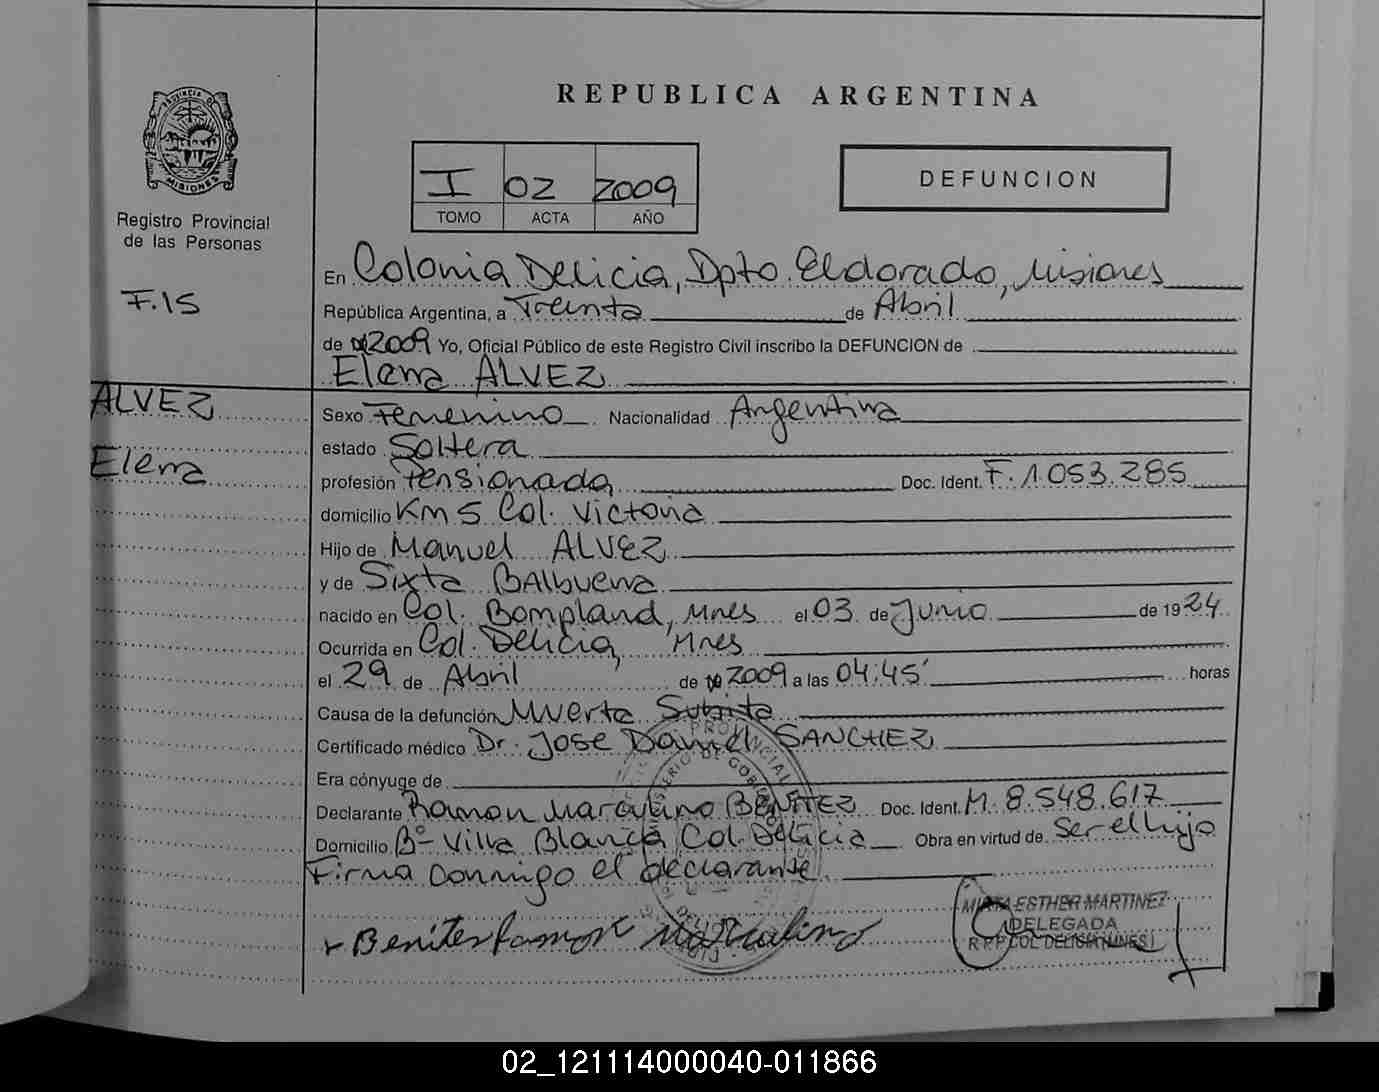 REPUBLICA ARGENTINA
PROVINCIA D MISIONES
Registro Provincial
de las Personas
F.15
I 02 2009
TOMO ACTA AÑO
DEFUNCION
En Colonia Delicia, Dpto. Eldorado, Misiones
República Argentina, a Treinta de Abril
de 2009 Yo, Oficial Público de este Registro Civil inscribo la DEFUNCION de
Elena ALVEZ
ALVEZ
Elena
Sexo Femenino Nacionalidad Argentina
estado Soltera
profesión Pensionada Doc. Ident. F. 1.053.285
domicilio Km 5 Col. Victoria
Hijo de Manuel ALVEZ
y de Sixta BAlbuena
nacido en Col. Bompland, Mnes el 03 de Junio de 1924
Ocurrida en Col. Delicia, Mnes
el 29 de Abril de 2009 a las 04:45' horas
Causa de la defunción Muerte Subita
Certificado médico Dr. Jose Daniel SANCHEZ
Era cónyuge de
Declarante Ramon Marcelino BENITEZ Doc. Ident. M. 8.548.617
Domicilio Bº Villa Blanca Col. Delicia Obra en virtud de Ser el hijo
Firma conmigo el declarante
Benites Ramon Marcelino
MIRTA ESTHER MARTINEZ
DELEGADA
R.P.P COL DELICIA (MNES)
02_121114000040-011866